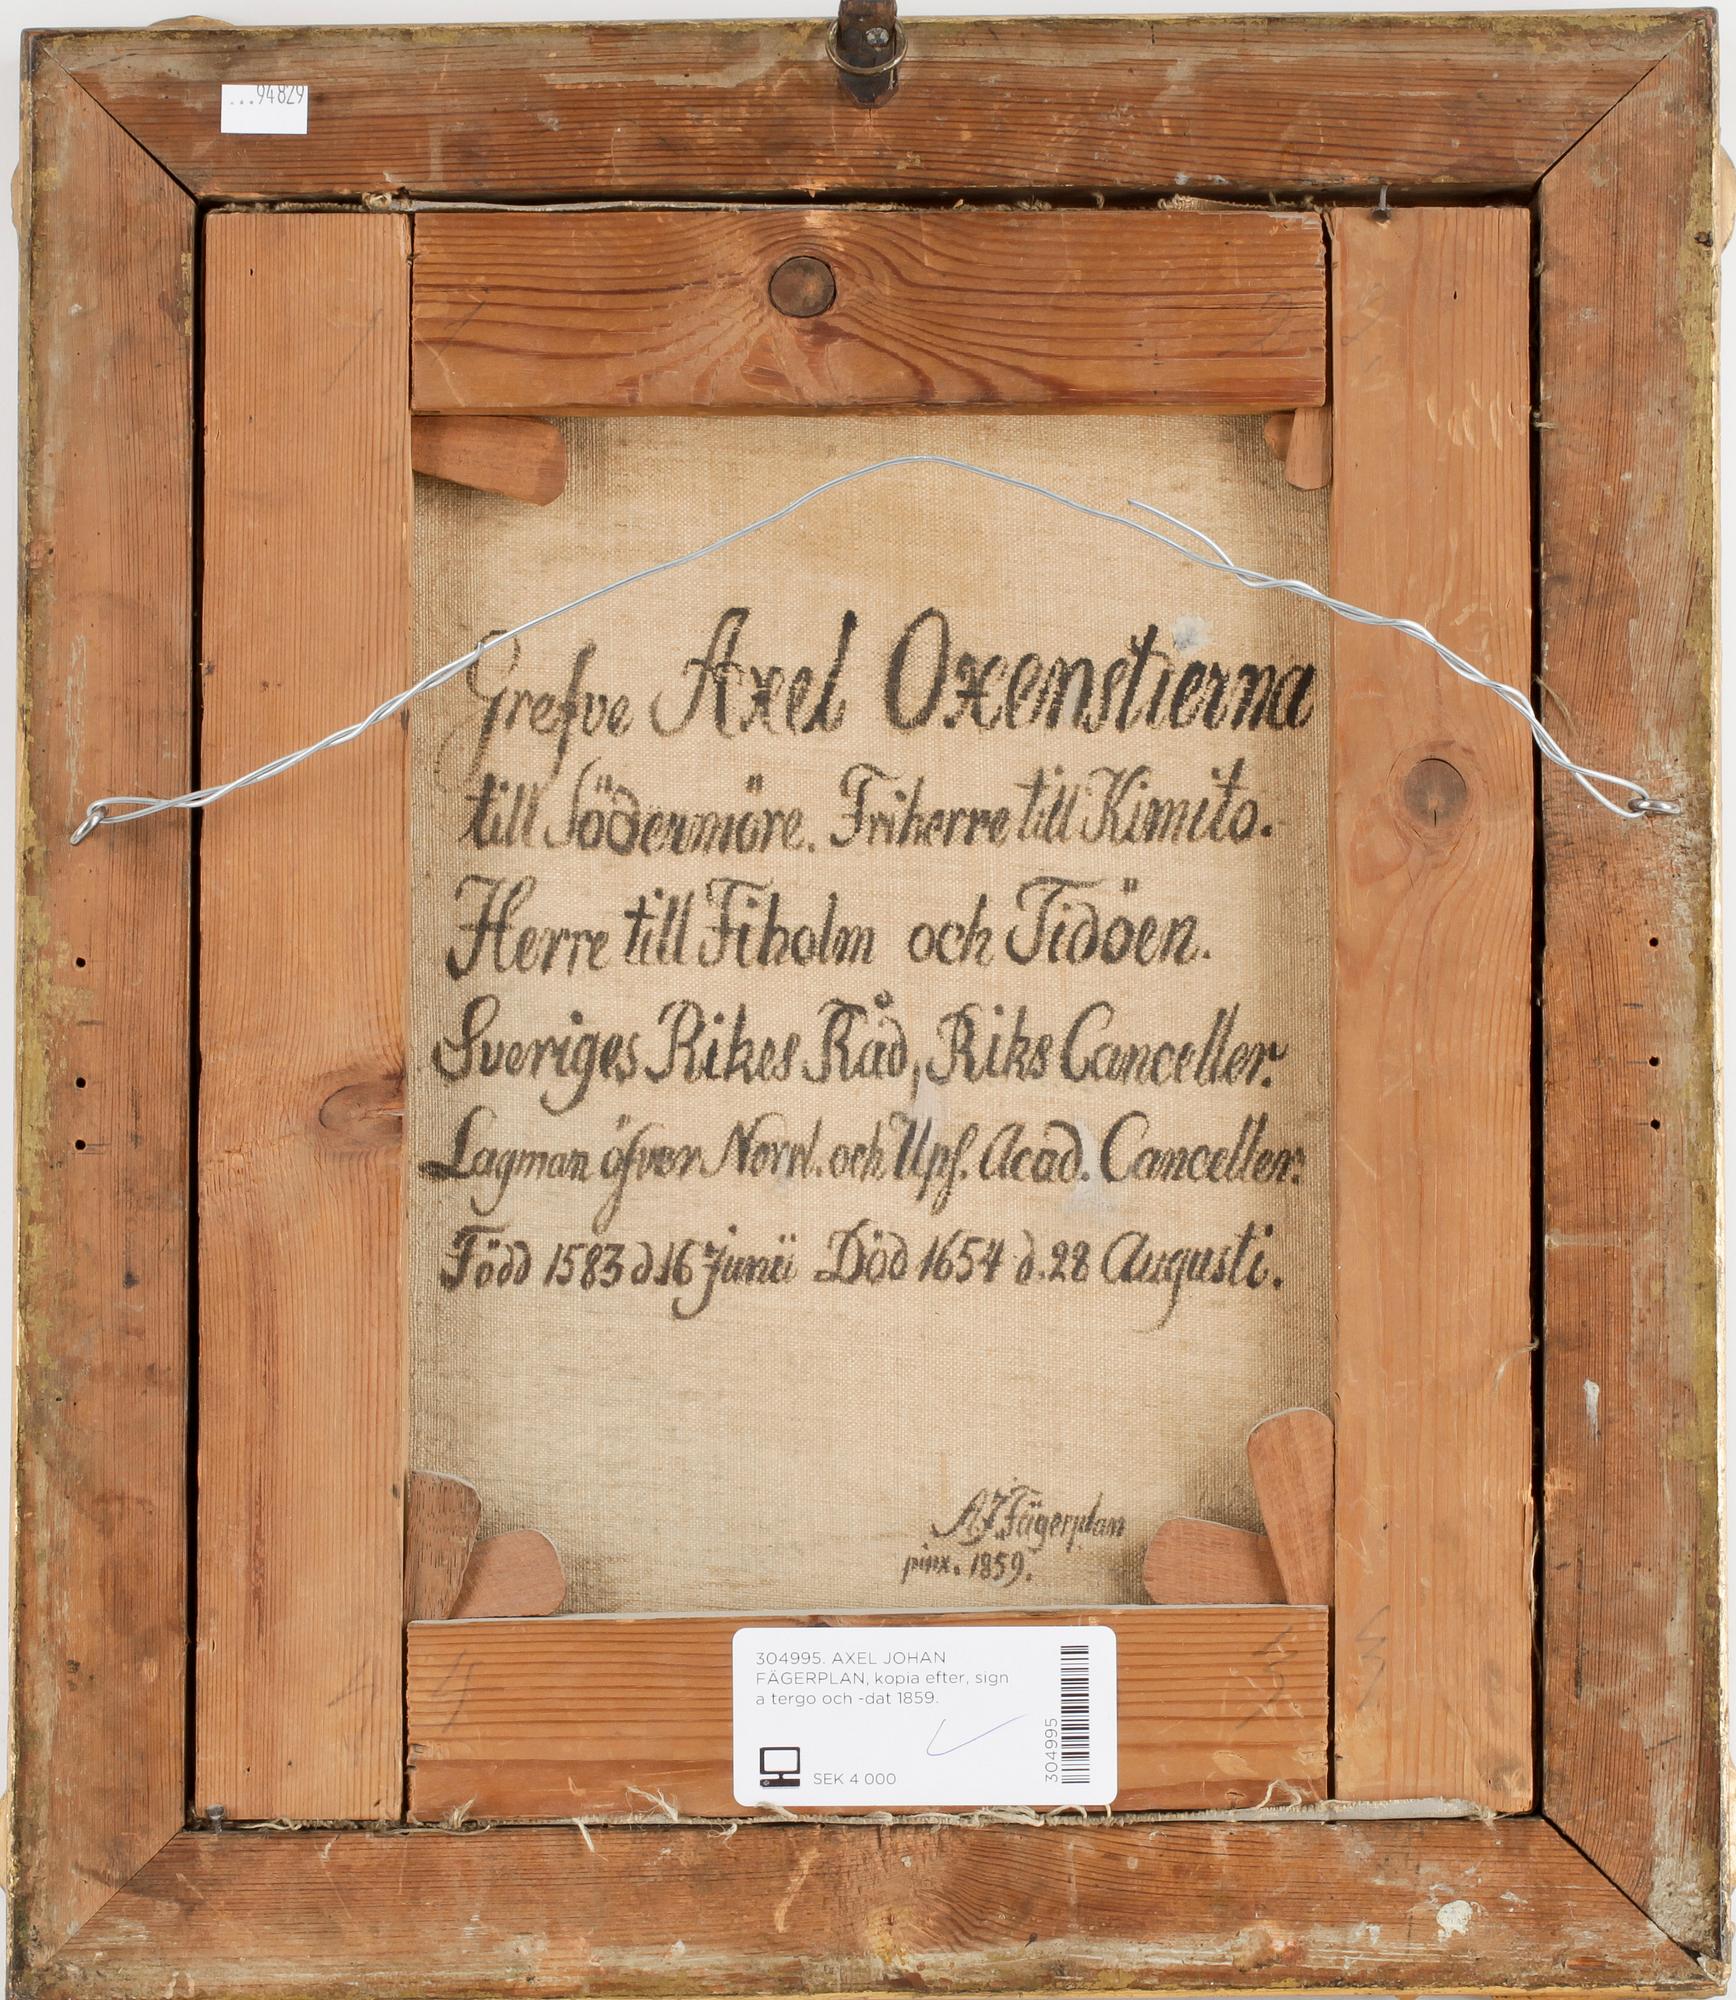 ...94829
Grefve Axel Oxenstierna
till Södermöre. Friherre till Kimito.
Herre till Fiholm och Tidöen.
Sveriges Rikes Råd, Riks Canceller.
Lagman öfver Norrl. och Ups. Acad. Canceller.
Född 1583 d 16 Junii Död 1654 d. 28 Augusti.
AJ Fägerplan
pinx. 1859.
304995. AXEL JOHAN
FÄGERPLAN, kopia efter, sign
a tergo och -dat 1859.
SEK 4 000
304995